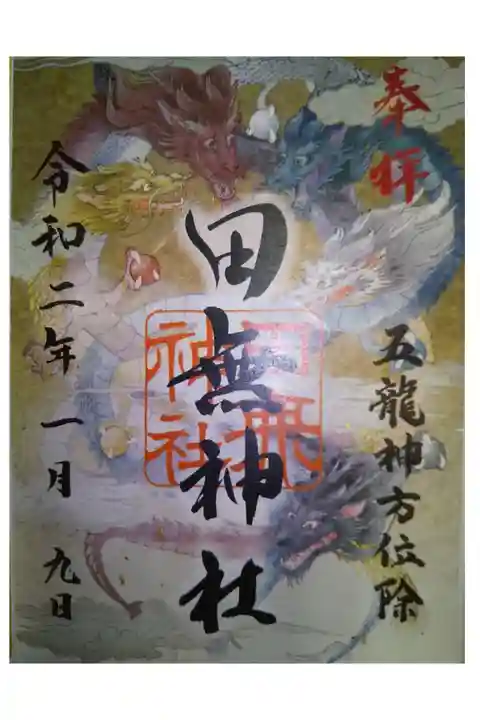 奉拝
五龍神方位除
田無神社
田無
神社
令和二年 一月 九日